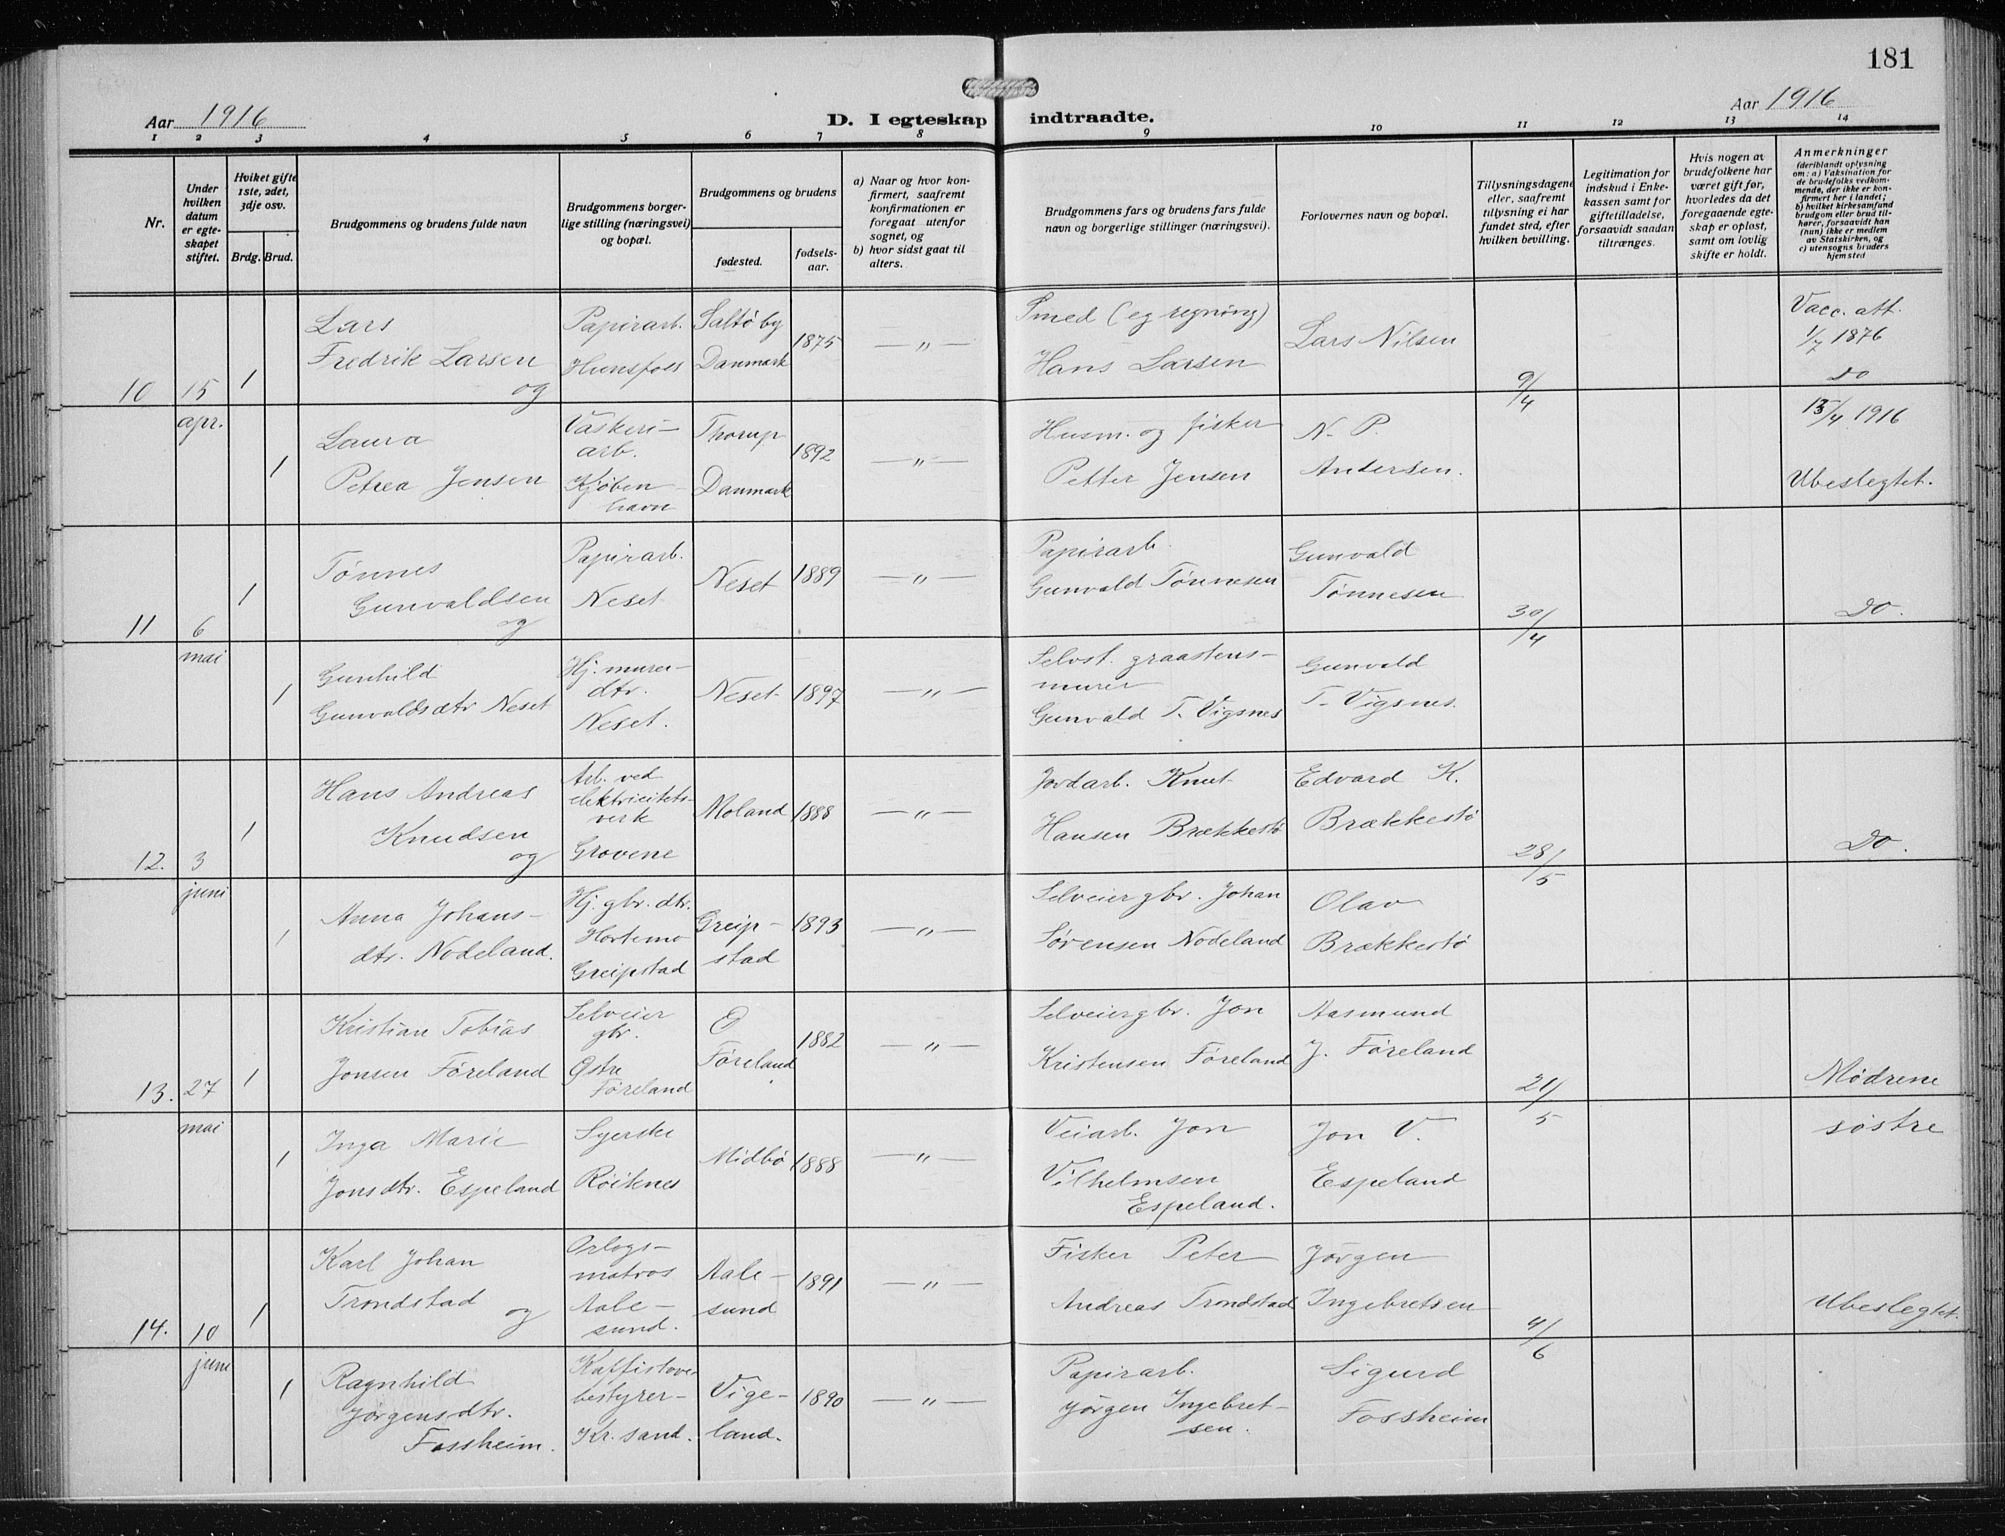 181
Aar 1916
D. I egteskap indtraadte.
Aar 1916
1 2 3 4 5 6 7 8 9 10 11 12 13 14
Nr.
Under hvilken datum er egteskapet stiftet.
Hviket gifte 1ste, 2det, 3dje osv.
Brdg. Brud.
Brudgommens og brudens fulde navn
Brudgommens borgerlige stilling (næringsvei) og bopæl.
Brudgommens og brudens
fødested.
fødselsaar.
a) Naar og hvor konfirmert, saafremt konfirmationen er foregaat utenfor sognet, og
b) hvor sidst gaat til alters.
Brudgommens fars og brudens fars fulde navn og borgerlige stillinger (næringsvei).
Forlovernes navn og bopæl.
Tillysningsdagene eller, saafremt tillysning ei har fundet sted, efter hvilken bevilling.
Legitimation for indskud i Enkekassen samt for giftetilladelse, forsaavidt saadan tiltrænges.
Hvis nogen av brudefolkene har været gift før, hvorledes da det foregaaende egteskap er opløst, samt om lovlig skifte er holdt.
Anmerkninger
(deriblandt oplysning om: a) Vaksination for de brudefolks vedkommende, der ikke er konfirmert her i landet; b) hvilket kirkesamfund brudgom eller brud tilhører, forsaavidt han (hun) ikke er medlem av Statskirken, og c) utensogns bruders hjemsted
10 15 apr. 1 Lars Fredrik Larsen og Papirarb. Hunsfoss Saltö by Danmark 1875 — " — Smed (eg regning) Hans Larsen Lars Nilsen 9/4 Vacc. att. 1/7 1876 do
1 Laura Petrea Jensen Vaskeriarb. Kjøbenhavn Thorup Danmark 1892 — " — Husm. og fisker Petter Jensen N. P. Andersen. 15/4 1916 Ubeslegtet.
11 6 mai 1 Tönnes Gunvaldsen og Papirarb. Neset Neset 1889 — " — Papirarb. Gunvald Tönnesen Gunvald Tönnesen 30/4 Do.
1 Gunhild Gunvaldsdtr Neset Hj. murerdtr. Neset. Neset 1897 — " — Selvst. graastensmurer Gunvald T. Vigsnes Gunvald T. Vigsnes.
12. 3 juni 1 Hans Andreas Knudsen og Arb. ved elektricitetsverk Grovene Moland 1888 — " — Jordarb. Knut Hansen Brækkestö Edvard K. Brækkestö 28/5 Do.
1 Anna Johansdtr. Nodeland. Hj. gbr. dtr. Hortemo Greipstad Greipstad 1893 — " — Selveiergbr. Johan Sørensen Nodeland Olav Brækkestö
13. 27 mai 1 Kristian Tobias Jonsen Föreland Selveier gbr. Østre Föreland Ø Föreland 1882 — " — Selveiergbr. Jon Kristensen Föreland Aasmund J. Föreland 21/5 Mødrene søstre
1 Inga Marie Jonsdtr. Espeland Syerske Röiknes Midbö 1888 — " — Veiarb. Jon Vilhelmsen Espeland. Jon V. Espeland
14. 10 juni 1 Karl Johan Trondstad og Orlogsmatros Aalesund. Aalesund 1891 — " — Fisker Peter Andreas Trondstad Jörgen Ingebretsen 4/6 Ubeslegtet.
1 Ragnhild Jörgensdtr. Fossheim. Kaffistovebestyrer Kr. sand. Vigeland. 1890 — " — Papirarb. Jörgen Ingebretsen. Sigurd Fossheim